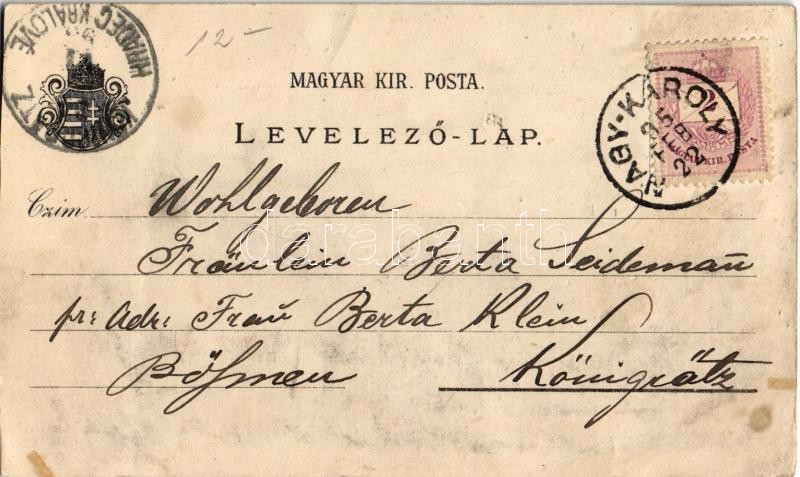 HRADEC KRÁLOVÉ
12-
MAGYAR KIR. POSTA.
LEVELEZŐ-LAP.
2
MAGYAR KIR. POSTA
NAGY-KÁROLY
95
FEB
22
Czim
Wohlgeboren
Fräulein Berta Seidemañ
pr: Adr: Frau Berta Klein
Böhmen Königrätz
darabanth